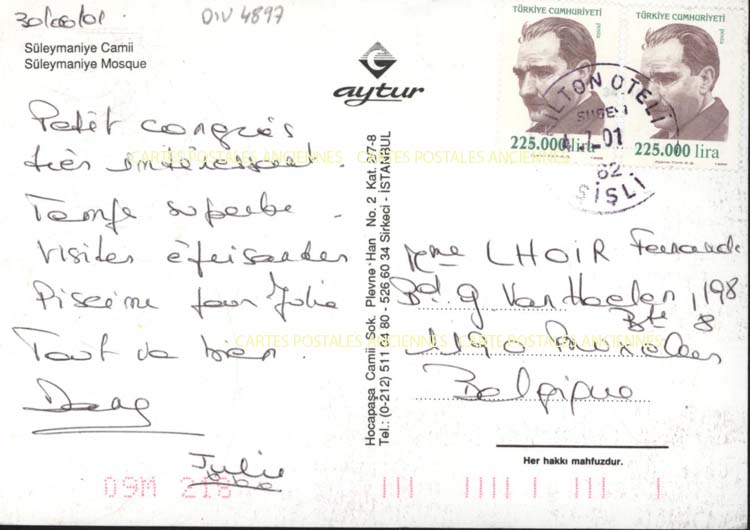 30/06/01
DIV 4897
Süleymaniye Camii
Süleymaniye Mosque
aytur
TÜRKİYE CUMHURİYETİ
posta
225.000 lira
TÜRKİYE CUMHURİYETİ
posta
225.000 lira
HILTON OTELİ
ŞUBESİ
4.7.01
62
ŞİŞLİ
Petit congrès
très intéressant.
Temps superbe.
Visites épuisantes
Piscine pour Julie
Tout va bien.
Julie
Hocapaşa Camii Sok. Plevne Han No. 2 Kat. 2/7-8
Tel.: (0-212) 511 64 80 - 526 60 34 Sirkeci - İSTANBUL
Mme LHOIR Fernande
Bd G Van Haelen, 198
Bte 8
1190 Bruxelles
Belgique
Her hakkı mahfuzdur.
09M 218
CARTES POSTALES ANCIENNES CARTES POSTALES ANCIENNES
CARTES POSTALES ANCIENNES CARTES POSTALES ANCIENNES